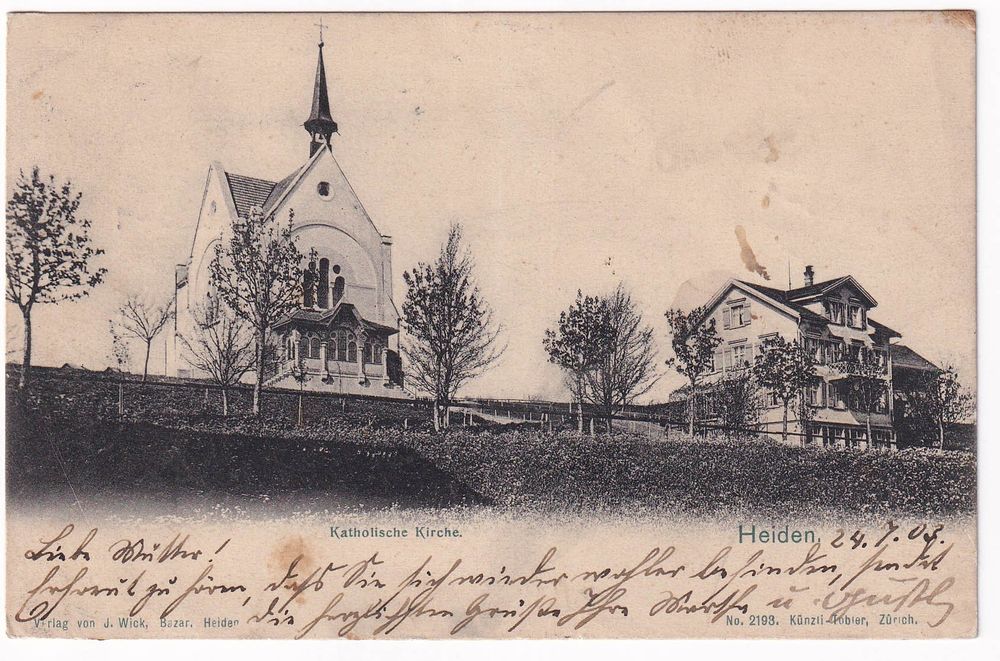 Katholische Kirche.
Heiden, 24.7.03.
Liebe Mutter!
Erfreut zu hören, dass Sie sich wieder wohler befinden, sendet
die herzlichsten Grüße Ihre Martha u. Gustl
Verlag von J. Wick, Bazar, Heiden
No. 2193. Künzli-Tobler, Zürich.